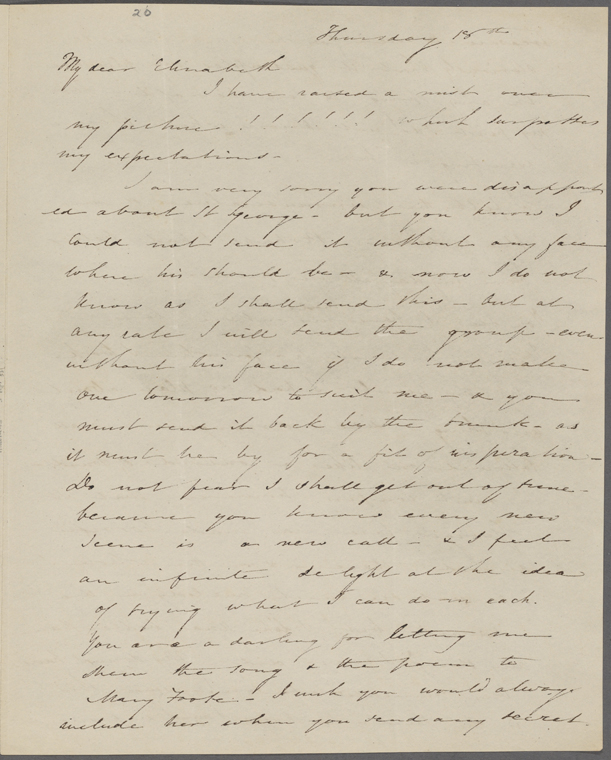 26
Thursday 18th
My dear Elizabeth
I have raised a mist over
my picture !!!!!!! which surpasses
my expectations -
I am very sorry you were disappoint
ed about St George - but you know I
could not send it without any face
where his should be - & now I do not
know as I shall send this - but at
any rate I will send the group - even
without his face if I do not make
one tomorrow to suit me - & you
must send it back by the trunk - as
it must lie by for a fit of inspiration -
Do not fear I shall get out of tune -
because you know every new
scene is a new call - & I feel
an infinite delight at the idea
of trying what I can do in each.
You are a darling for letting me
shew the song & the poem to
Mary Foote - I wish you would always
include her when you send any secret.